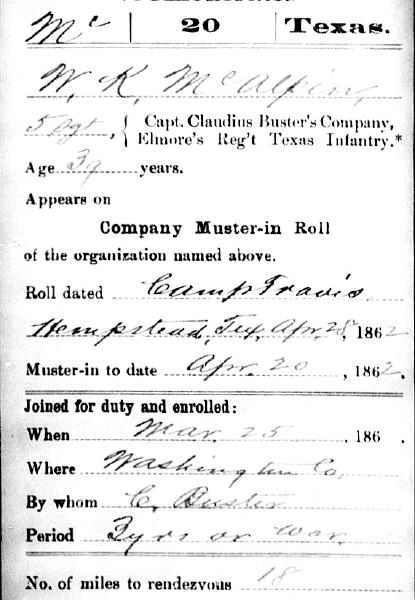 Mc | 20 | Texas.
W. K. McAlpin,
5 Sgt, { Capt. Claudius Buster's Company,
Elmore's Reg't Texas Infantry.*
Age 39 years.
Appears on
Company Muster-in Roll
of the organization named above.
Roll dated Camp Travis
Hempstead, Tex, Apr. 28, 1862
Muster-in to date Apr. 20, 1862.
Joined for duty and enrolled:
When Mar. 25, 186 .
Where Washington Co,
By whom C. Buster
Period 3 yrs or war.
No. of miles to rendezvous 18